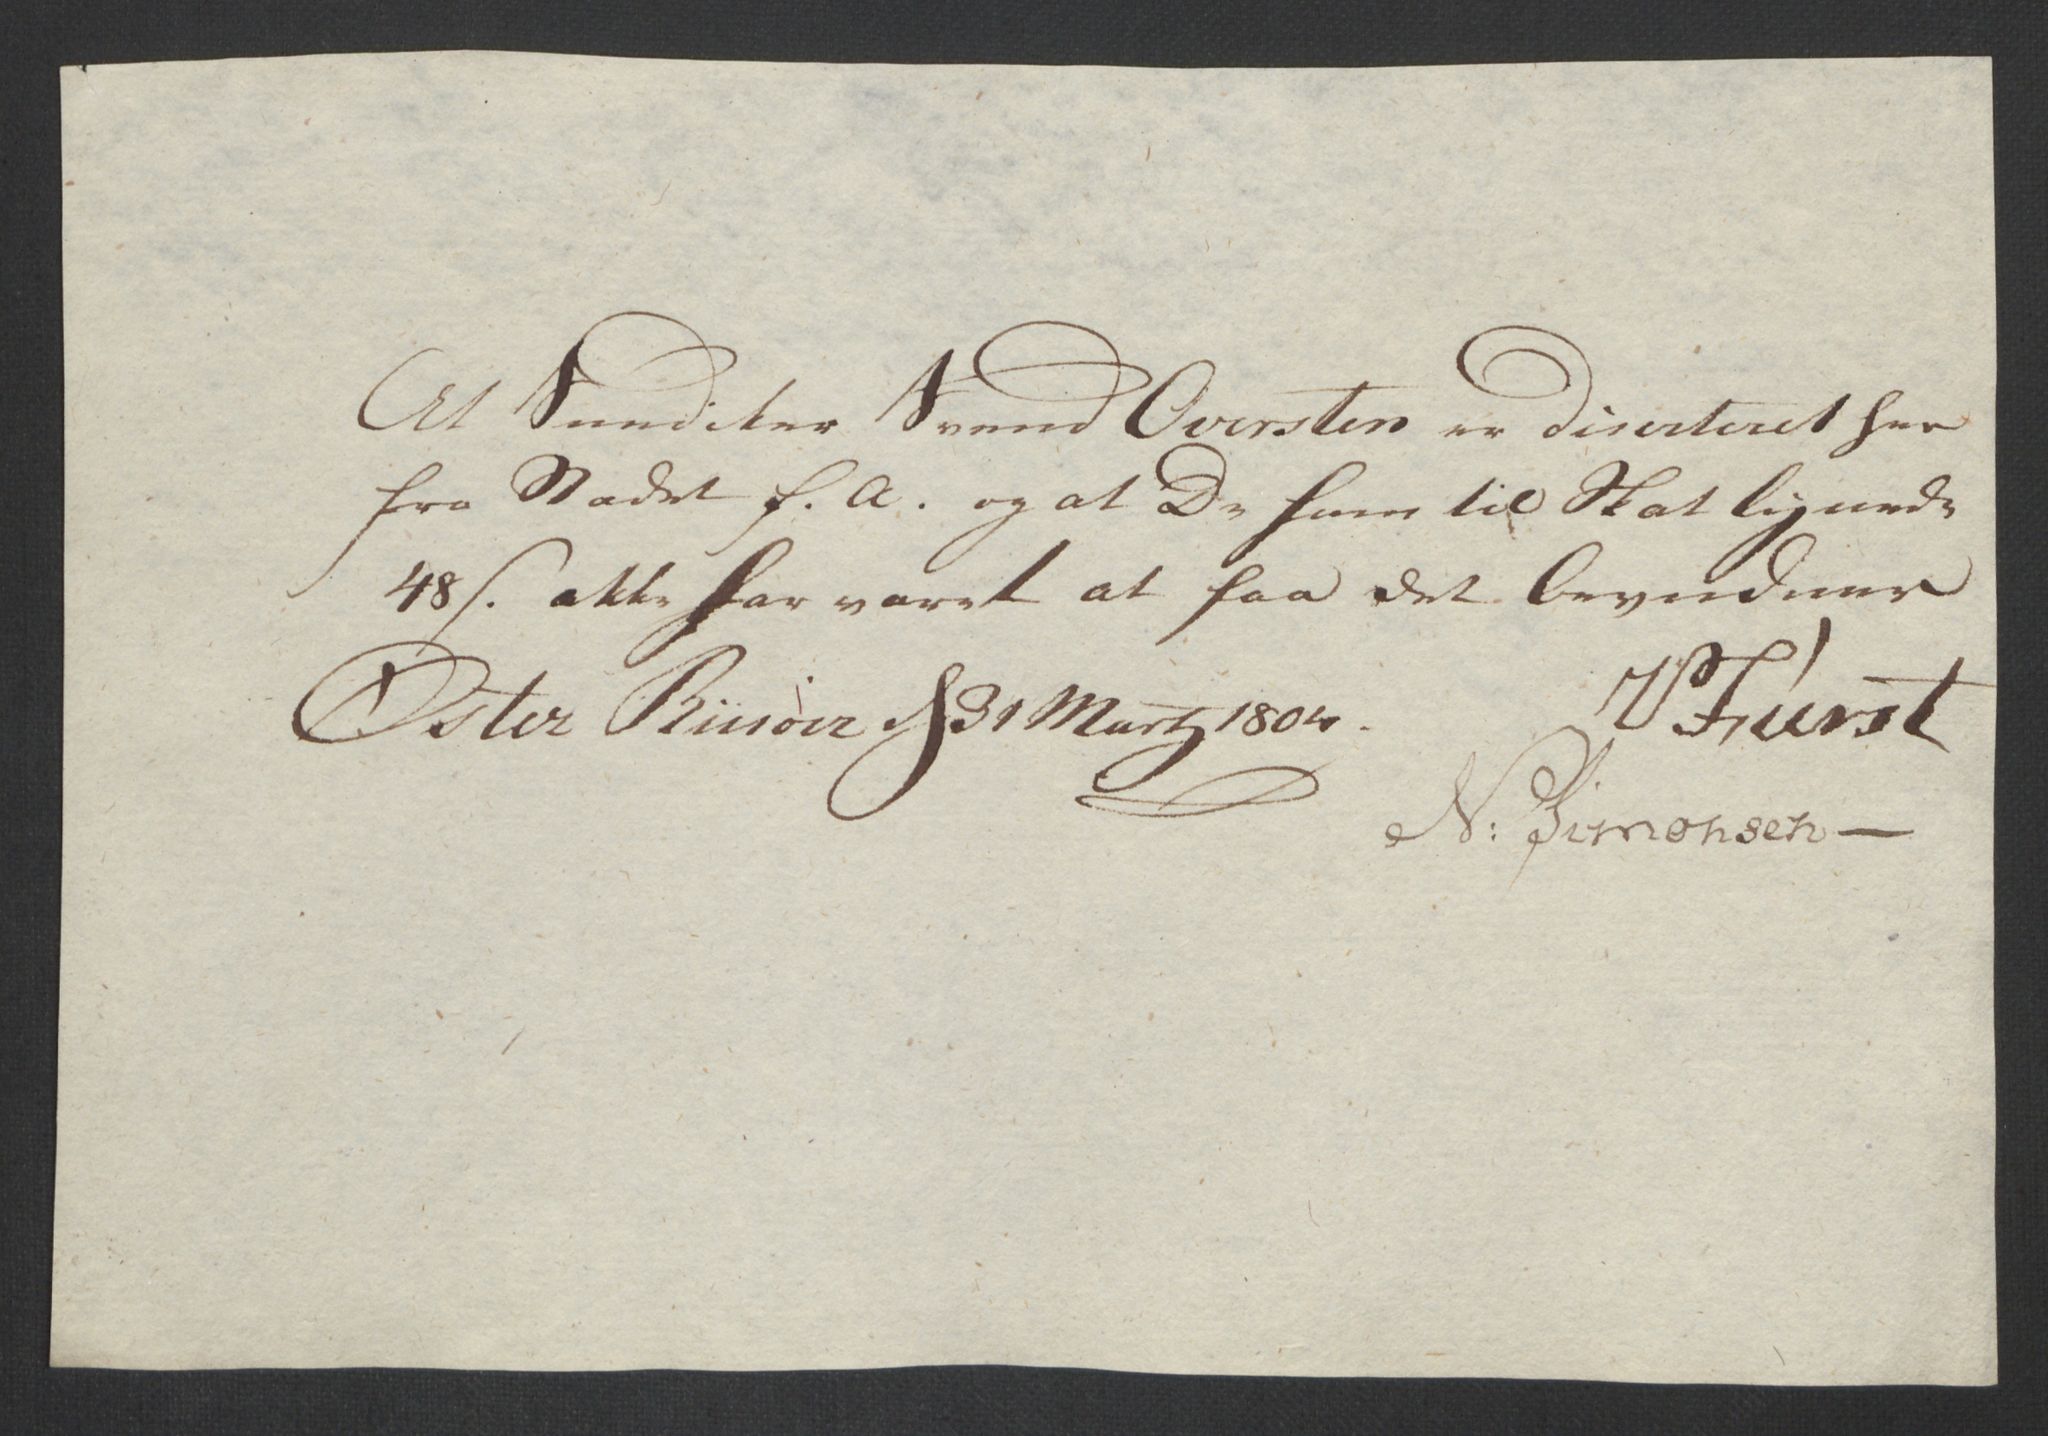 At Snediker Svend Oversten er diserteret her
fra Stadet f. A. og at De ham til Skat lignede
48 s. ikke har været at faa det bevidner
Øster Riisøer d 31 Martz 1804.
Fürst
N: Simonsen